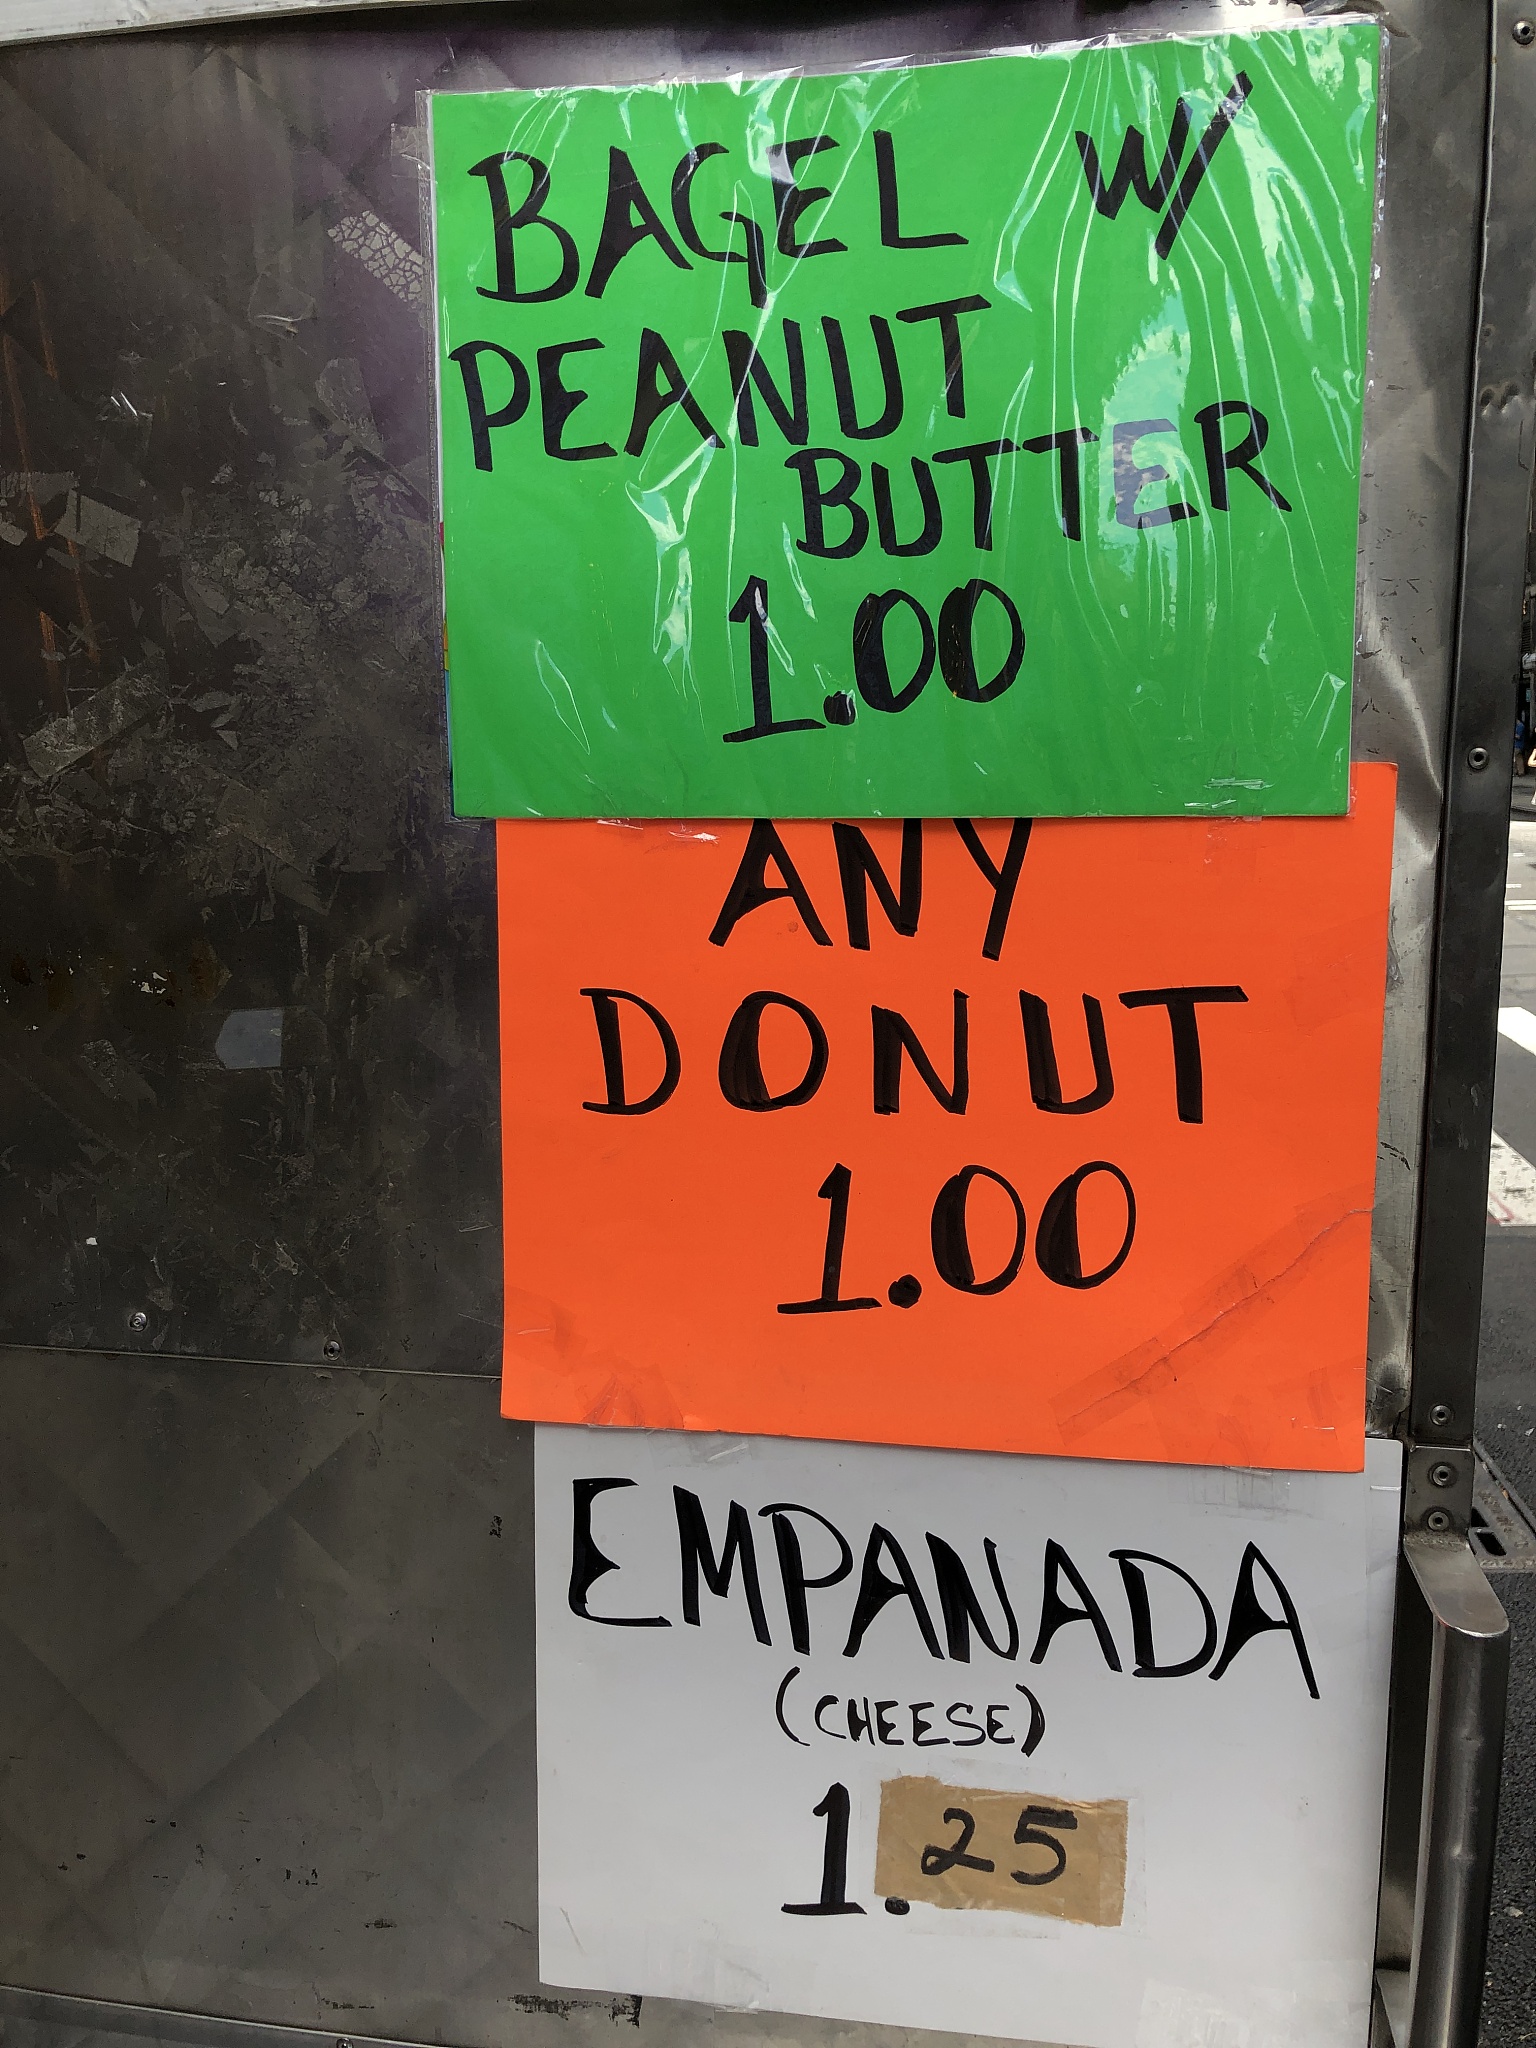 BAGEL W/
PEANUT
BUTTER
1.00
ANY
DONUT
1.00
EMPANADA
(CHEESE)
1.25